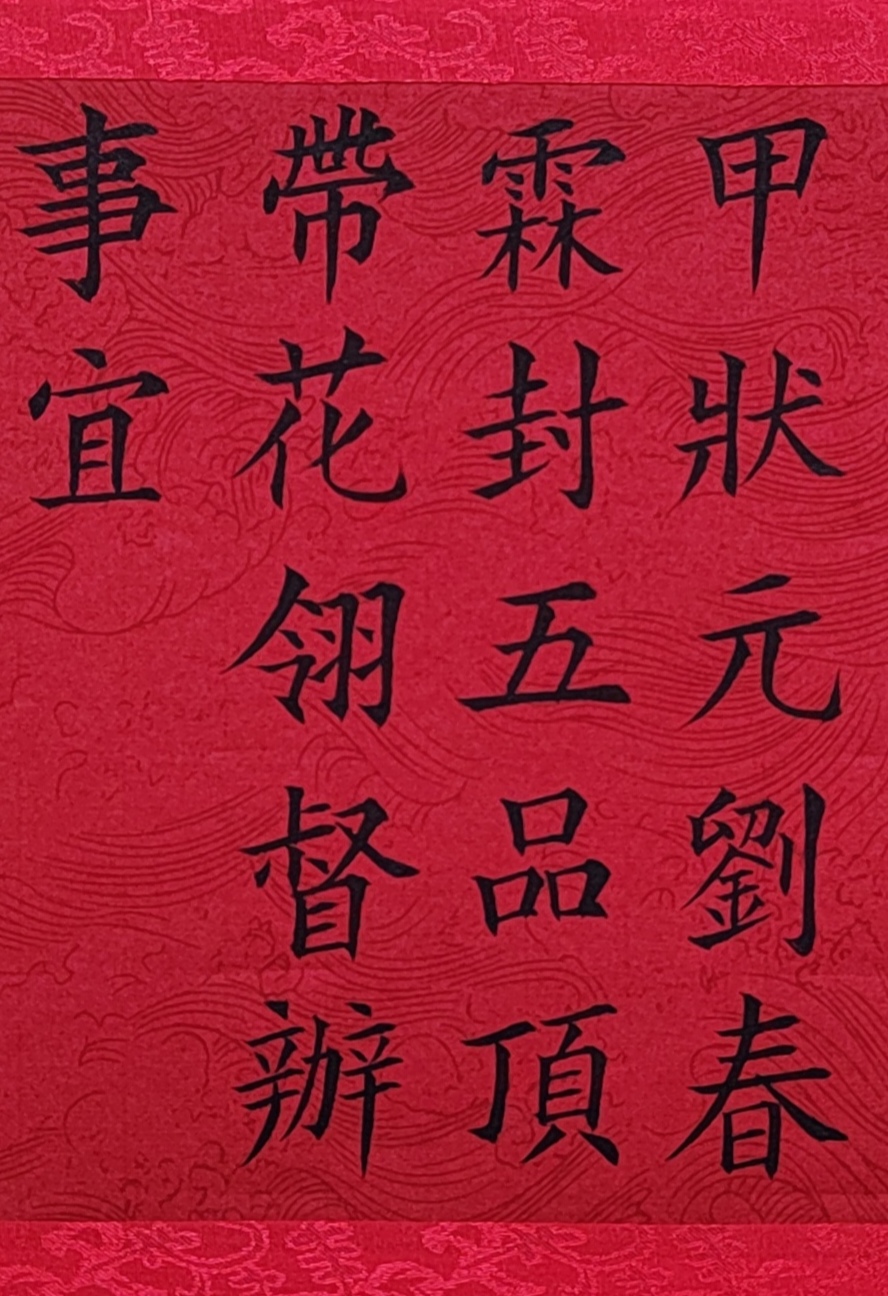 甲狀元劉春
霖封五品頂
帶花翎督辦
事宜